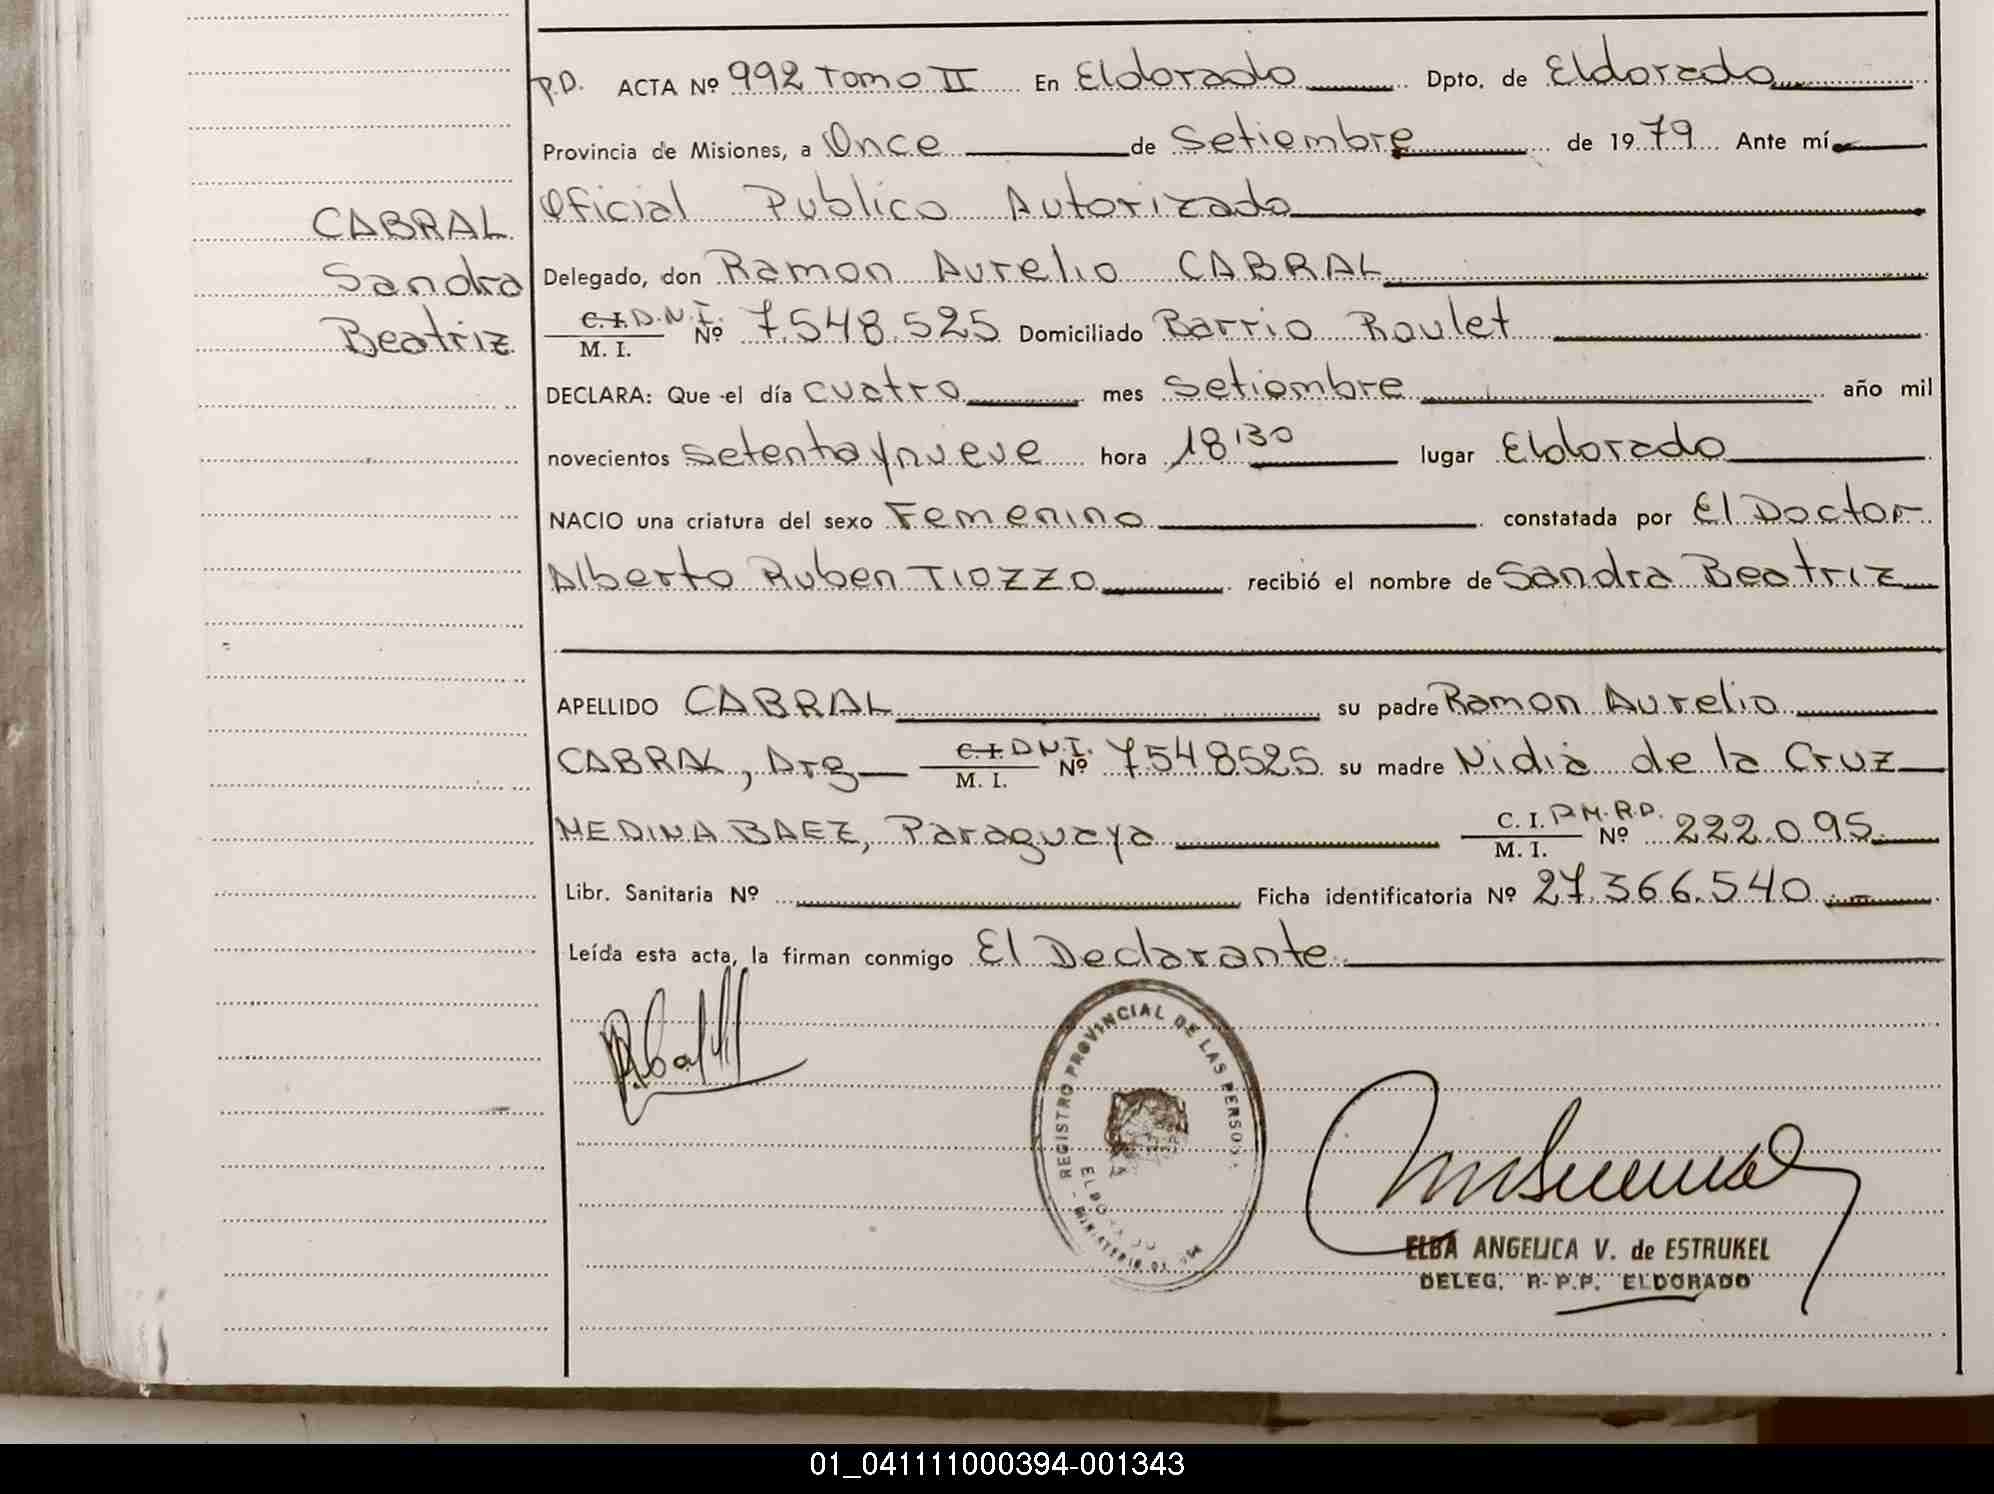 P.D. ACTA Nº 992 Tomo II En Eldorado Dpto. de Eldorado
Provincia de Misiones, a Once de Setiembre de 1979 Ante mí
Oficial Publico Autorizado
CABRAL
Sandra
Beatriz
Delegado, don Ramon Aurelio CABRAL
C.I. D.N.I. Nº 7.548.525 Domiciliado Barrio Roulet
M. I.
DECLARA: Que el día cuatro mes Setiembre año mil
novecientos setenta y nueve hora 18,30 lugar Eldorado
NACIO una criatura del sexo Femenino constatada por El Doctor
Alberto Ruben TIOZZO recibió el nombre de Sandra Beatriz
APELLIDO CABRAL su padre Ramon Aurelio
CABRAL, Arg C.I. D.N.I. Nº 7548525 su madre Nidia de la Cruz
M. I.
MEDINA BAEZ, Paraguaya C. I. Nº 222.095
M. I.
Libr. Sanitaria Nº Ficha identificatoria Nº 27.366.540
Leída esta acta, la firman conmigo El Declarante
REGISTRO PROVINCIAL DE LAS PERSO
ELDORADO
ELBA ANGELICA V. de ESTRUKEL
DELEG. R.P.P. ELDORADO
01_041111000394-001343